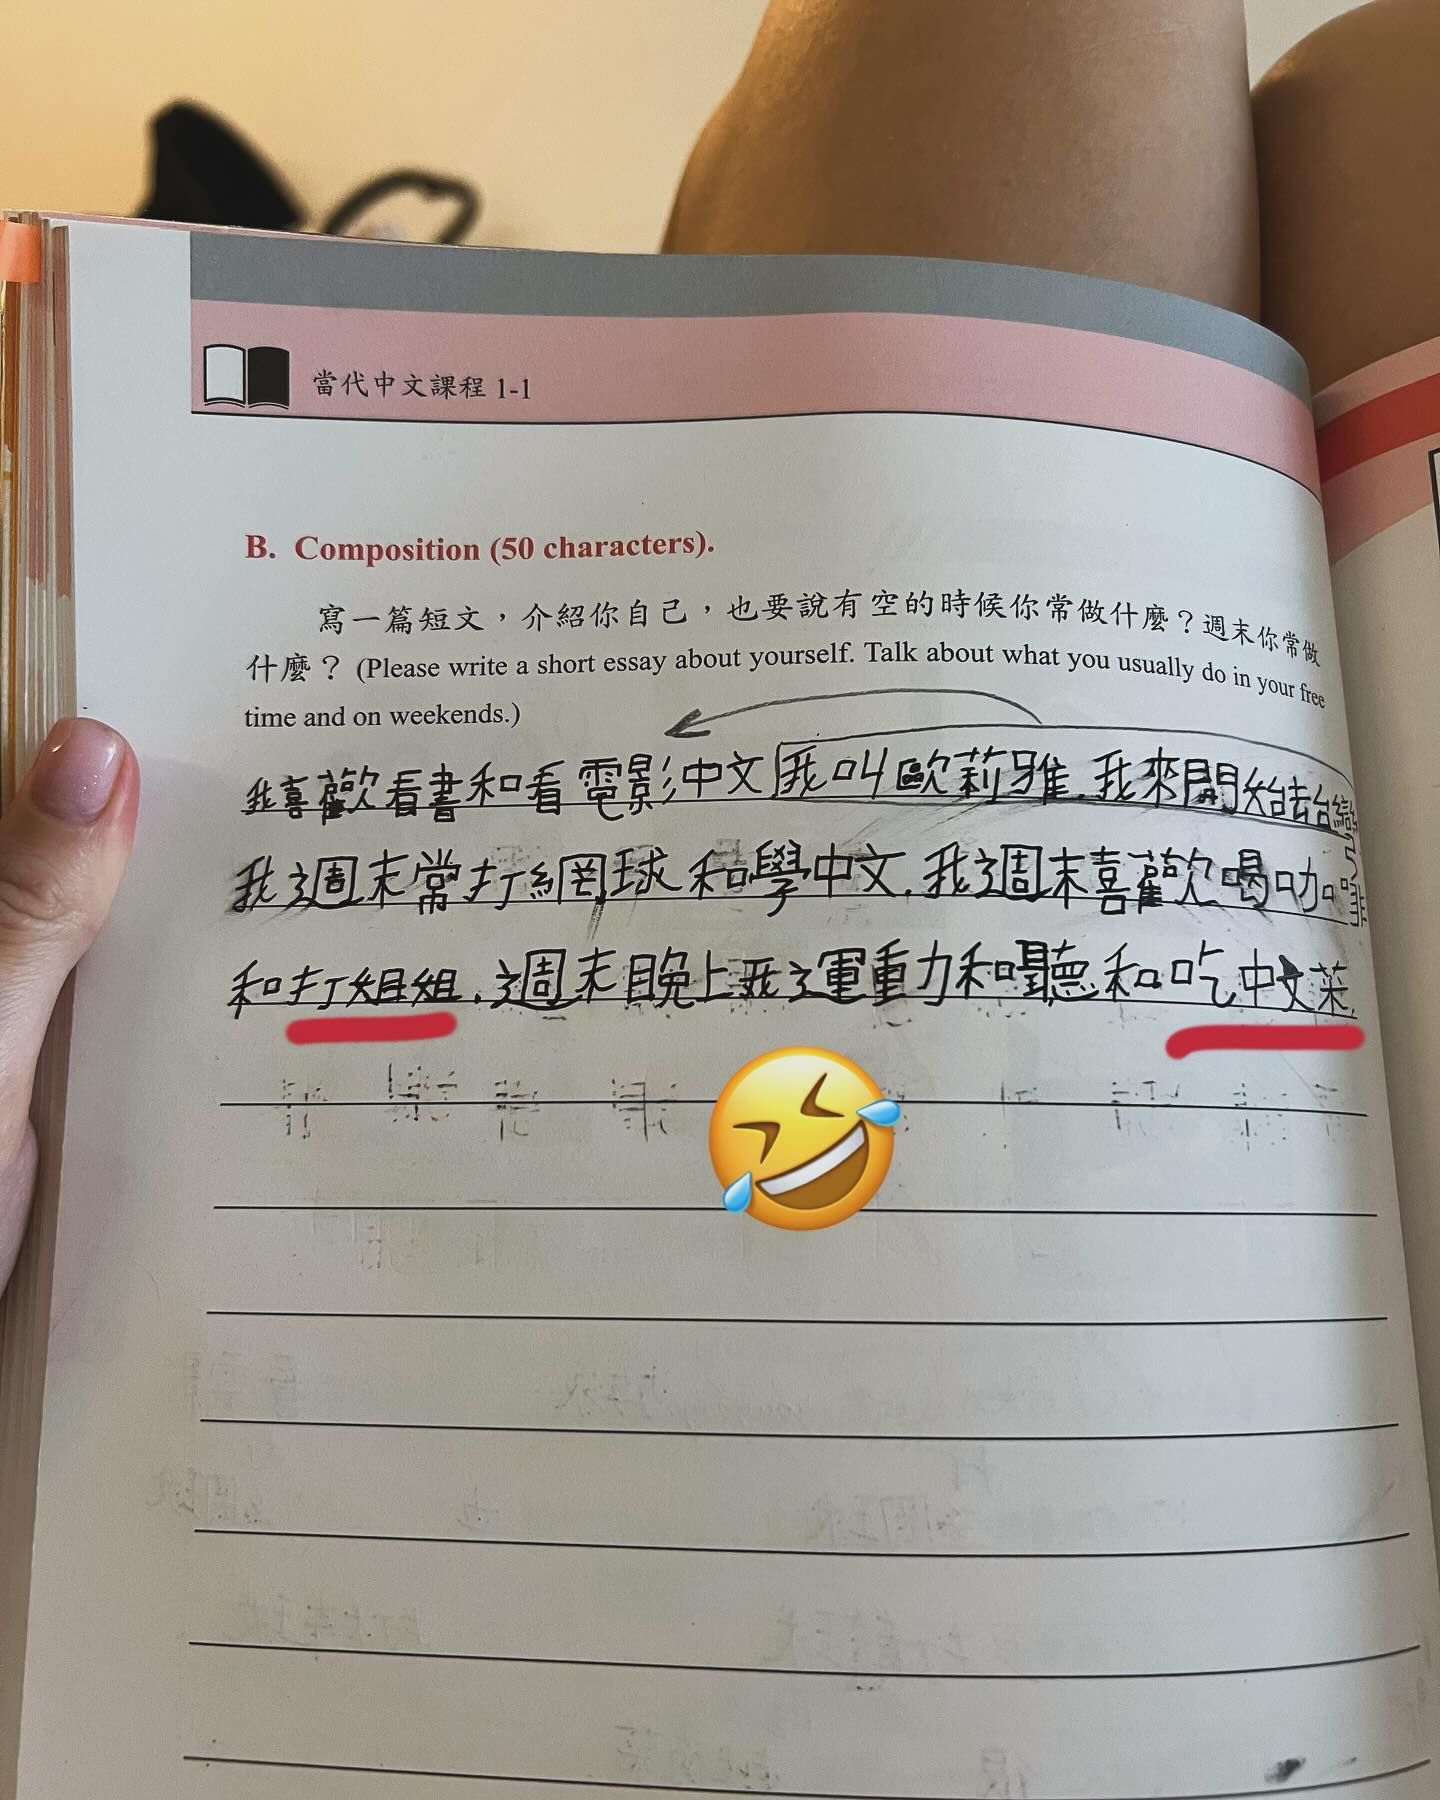 當代中文課程 1-1
B. Composition (50 characters).
寫一篇短文，介紹你自己，也要說有空的時候你常做什麼？週末你常做
什麼？(Please write a short essay about yourself. Talk about what you usually do in your free
time and on weekends.)
我喜歡看書和看電影中文我叫歐莉雅.我來開始去台灣
我週末常打網球和學中文.我週末喜歡喝咖啡
和打姐姐.週末晚上我運動和聽和吃中文菜.